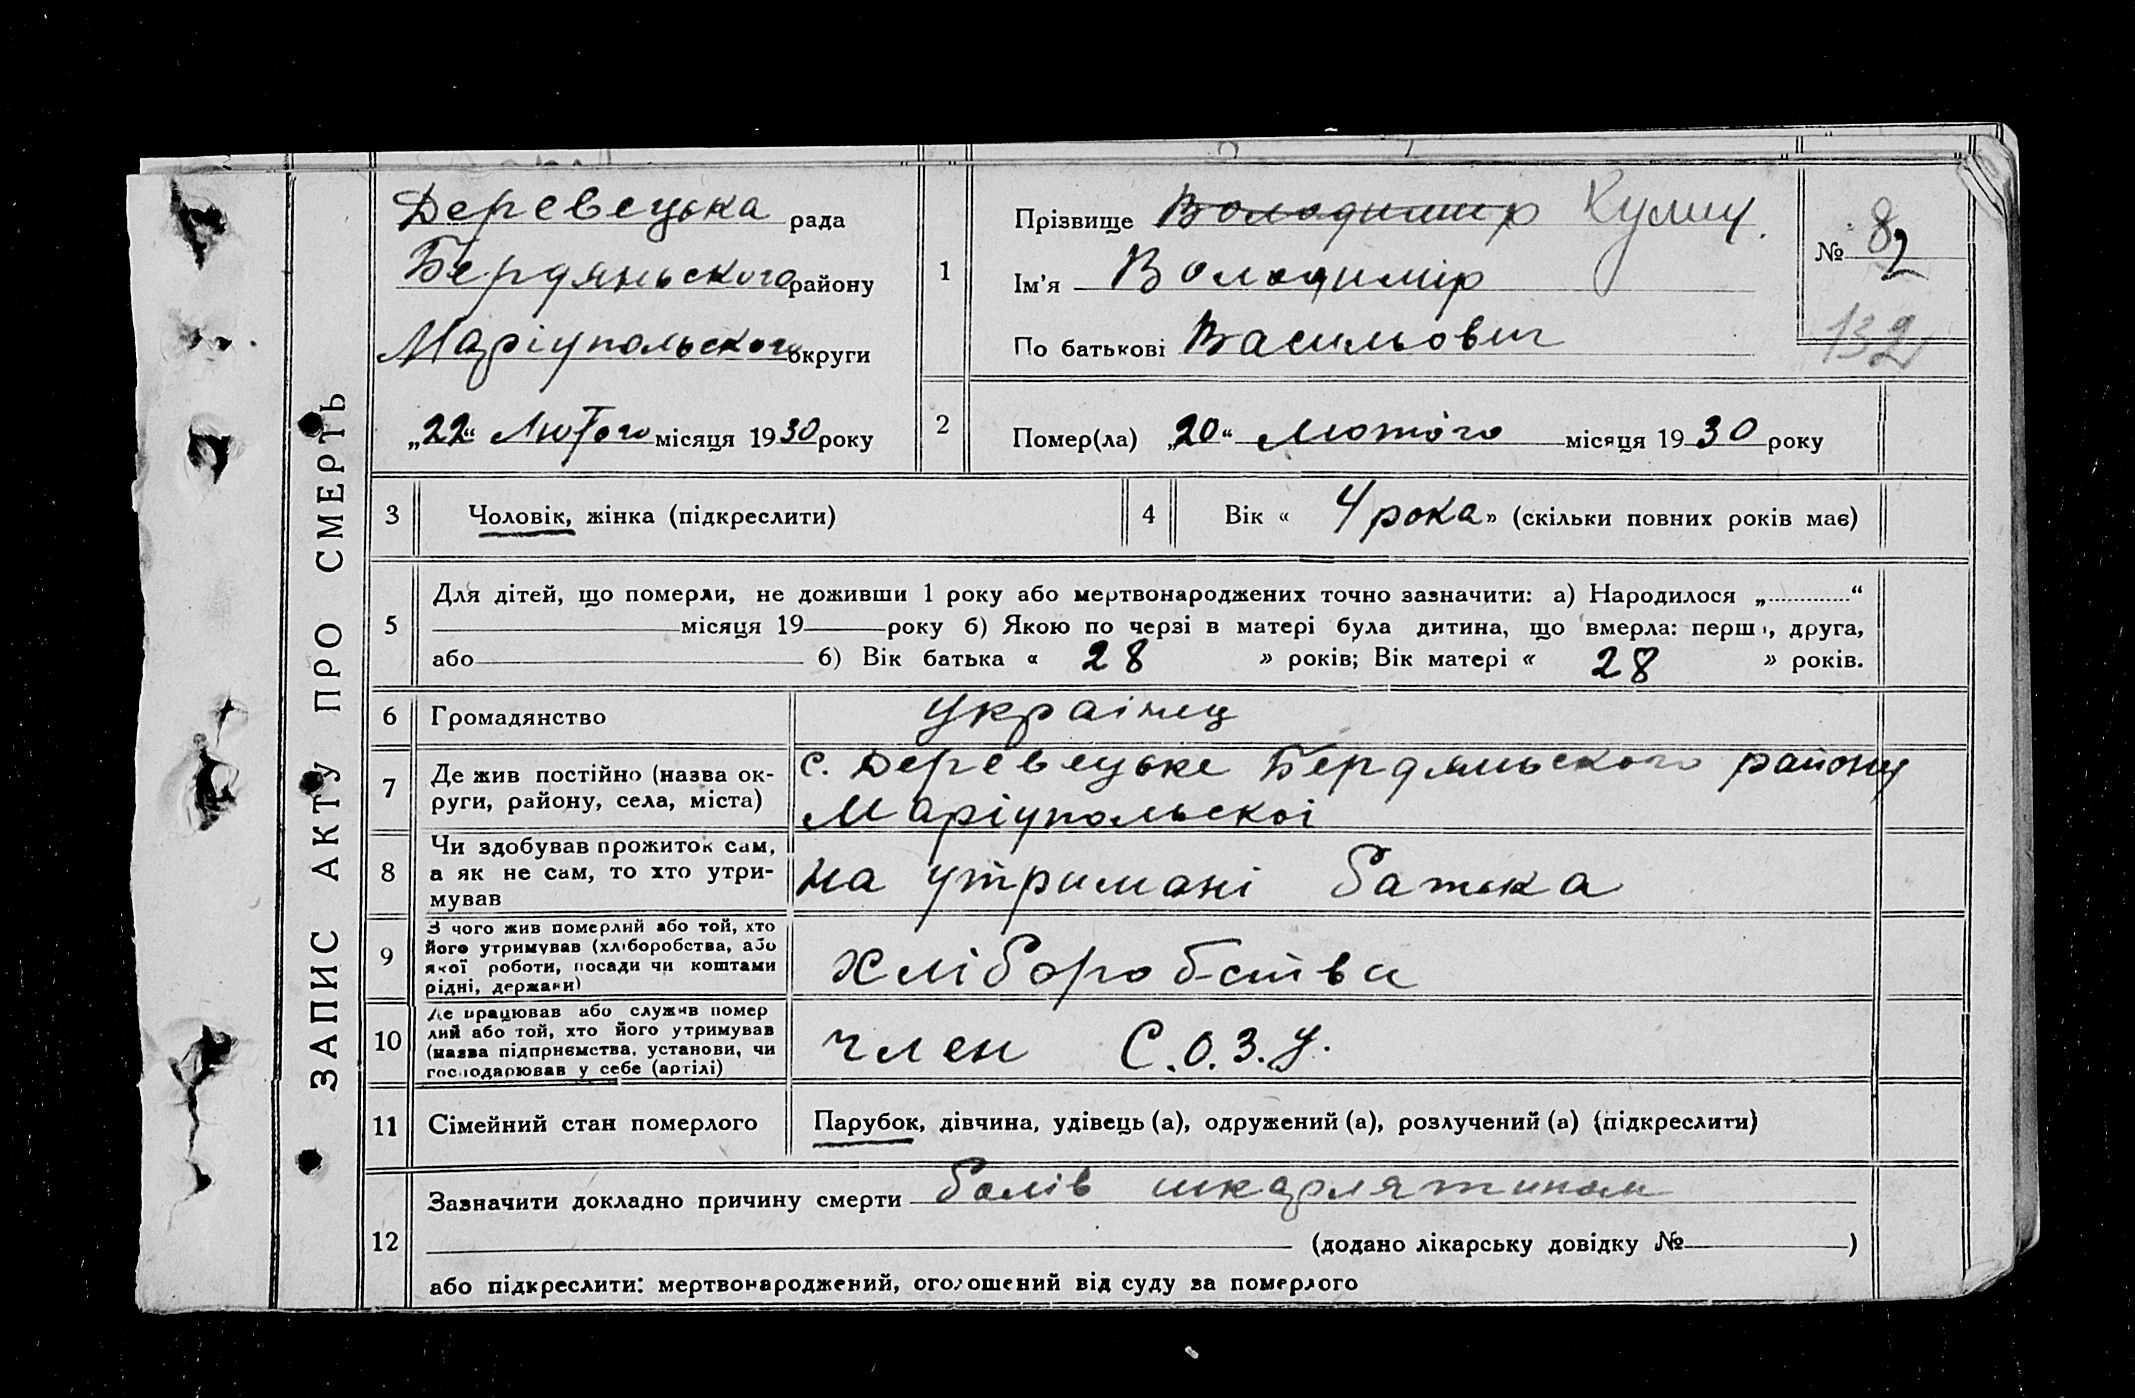 ЗАПИС АКТУ ПРО СМЕРТЬ
Деревецька рада
Бердяньского району
Маріупольского округи
„22“ Лютого місяця 1930 року
1
Прізвище Володимир
Ім'я Володимір
По батькові Васильович
№ 82
132
2
Помер(ла) „20“ Лютого місяця 1930 року
3 Чоловік, жінка (підкреслити)
4 Вік « 4 рока » (скільки повних років має)
5
Для дітей, що померли, не доживши 1 року або мертвонароджених точно зазначити: а) Народилося „ “
місяця 19 року б) Якою по черзі в матері була дитина, що вмерла: перш, друга,
або б) Вік батька « 28 » років; Вік матері « 28 » років.
6 Громадянство украінец
7
Де жив постійно (назва ок-
руги, району, села, міста)
с. Деревецьке Бердяньского району
Маріупольскоі
8
Чи здобував прожиток сам,
а як не сам, то хто утри-
мував
на утримані батька
9
З чого жив померлий або той, хто
його утримував (хліборобства, або
якої роботи, посади чи коштами
рідні, держави)
хліборобства
10
Де працював або служив помер
лий або той, хто його утримував
(назва підприємства, установи, чи
господарював у себе (артілі)
член С.О.З.у.
11 Сімейний стан померлого Парубок, дівчина, удівець (а), одружений (а), розлучений (а) (підкреслити)
12
Зазначити докладно причину смерти болів шкарлятином
(додано лікарську довідку № )
або підкреслити: мертвонароджений, оголошений від суду за померлого